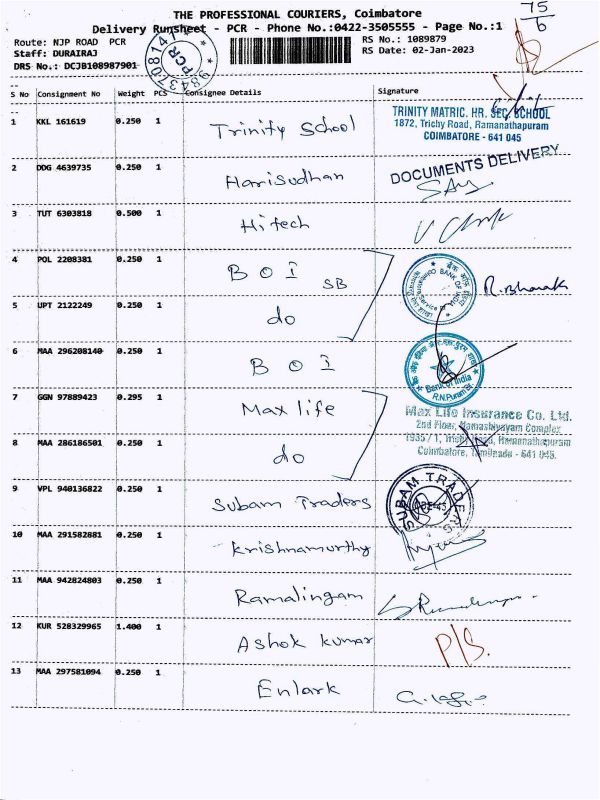 THE PROFESSIONAL COURIERS, Coimbatore
75
6
Delivery Runsheet - PCR - Phone No.:0422-3505555 - Page No.:1
Route: NJP ROAD PCR
RS No.: 1089879
Staff: DURAIRAJ
RS Date: 02-Jan-2023
DRS No.: DCJB108987901
PCR
9843708141
S No Consignment No Weight PCS Consignee Details Signature
1 KKL 161619 0.250 1 Trinity School
TRINITY MATRIC. HR. SEC. SCHOOL
1872, Trichy Road, Ramanathapuram
COIMBATORE - 641 045
2 DDG 4639735 0.250 1 Harisudhan
DOCUMENTS DELIVERY
3 TUT 6303818 0.500 1 Hitech
4 POL 2208381 0.250 1 BOI SB
R. Bharath
5 UPT 2122249 0.250 1 do
6 MAA 296208140 0.250 1 BOI
Bank of India
R.N.Puram Br.
7 GGN 97889423 0.295 1 Max life
Max Life Insurance Co. Ltd.
2nd Floor, Namashivayam Complex
1935 / 1, Trichy Road, Ramanathapuram
Coimbatore, Tamilnadu - 641 045.
8 MAA 286186501 0.250 1 do
9 VPL 940136822 0.250 1 Subam Traders
SUBAM TRADERS
CBE-45
10 MAA 291582881 0.250 1 Krishnamurthy
11 MAA 942824803 0.250 1 Ramalingam
12 KUR 528329965 1.400 1 Ashok Kumar
P/S.
13 MAA 297581094 0.250 1 Enlark